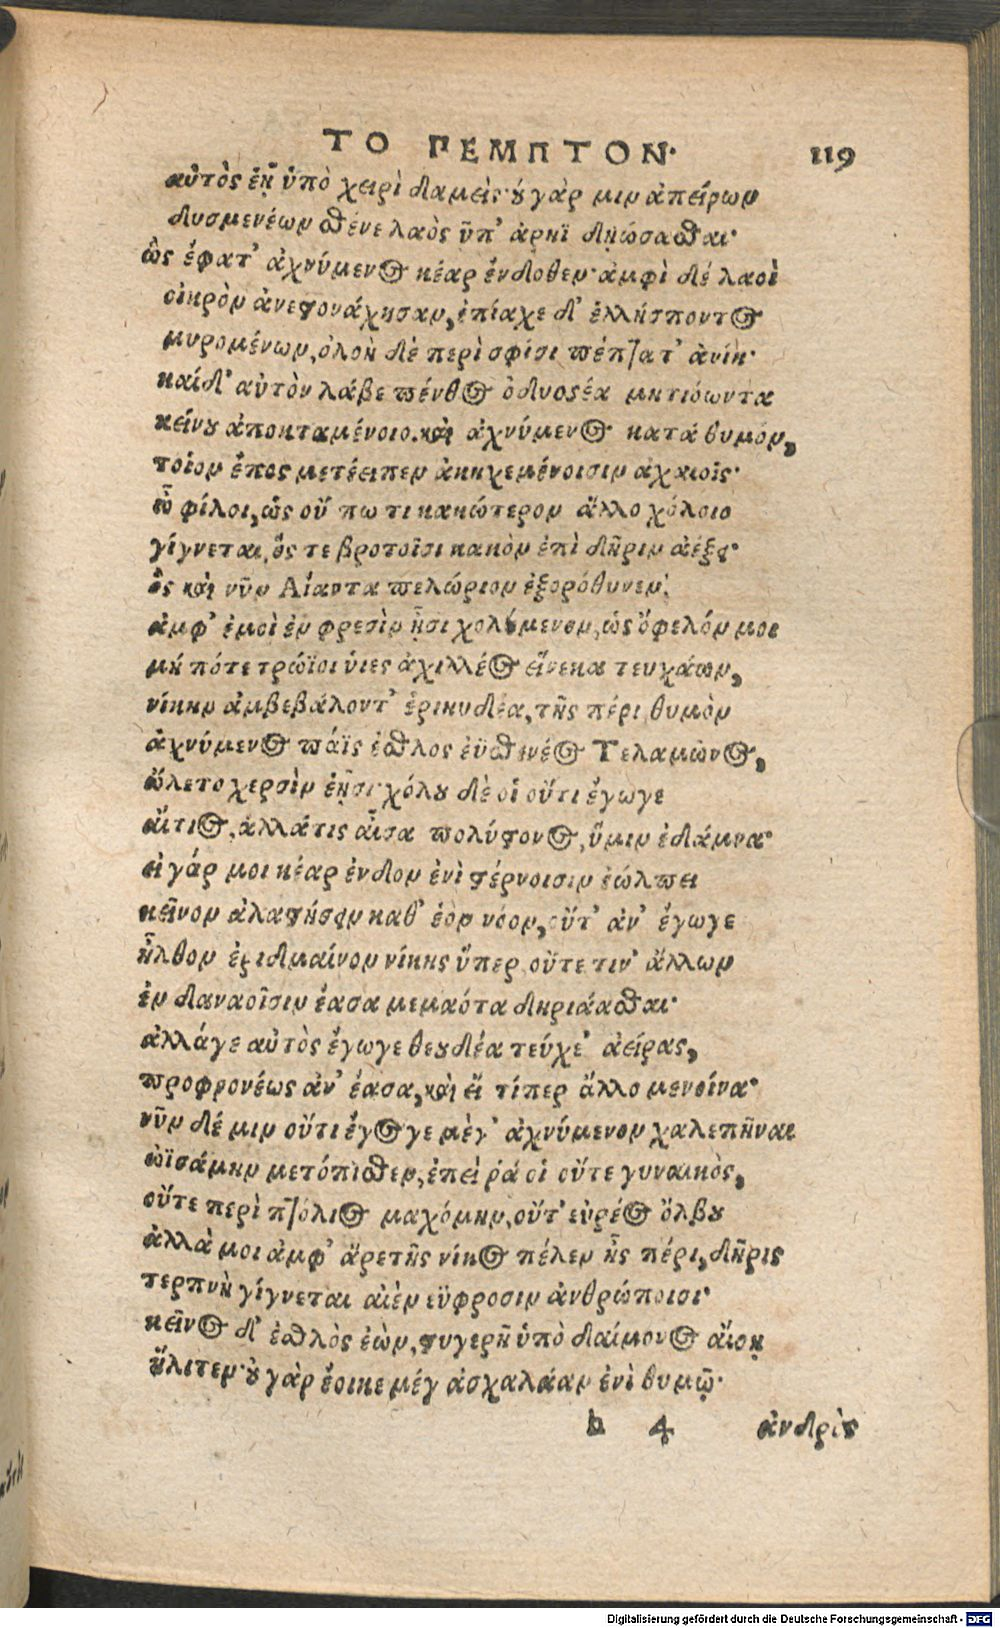 ΤΟ ΠΕΜΠΤΟΝ· 119
αὐτὸς ἑῇ ὑπὸ χειρὶ δαμείς· οὐ γάρ μιν ἀπείρων
δυσμενέων σθένε λαὸς ὑπ' ἄρηϊ δῃώσασθαι·
ὣς ἔφατ' ἀχνύμενος κέαρ ἔνδοθεν· ἀμφὶ δέ λαοὶ
οἰκρὸν ἀνεστονάχησαν, ἐπίαχε δ' ἑλλήσποντος
μυρομένων, ὀλοὴ δὲ περὶ σφίσι πέπτατ' ἀνίη·
καί δ' αὐτὸν λάβε πένθος ὀδυοσέα μητιόωντα
κείνου ἀποκταμένοιο. καὶ ἀχνύμενος κατά θυμόν,
τοῖον ἔπος μετέειπεν ἀκηχεμένοισιν ἀχαιοῖς·
ὦ φίλοι, ὡς οὔ πω τι κακώτερον ἄλλο χόλοιο
γίγνεται, ὅς τε βροτοῖσι κακὸν ἐπὶ δῆριν ἀέξει·
ὃς καὶ νῦν Αἴαντα πελώριον ἐξορόθυνεν·
ἀμφ' ἐμοὶ ἐν φρεσὶν ᾗσι χολούμενον, ὡς ὄφελόν μοι
μή πότε τρώϊοι υἷες ἀχιλλέος εἵνεκα τευχέων,
νίκην ἀμβεβάλοντ' ἐρικυδέα, τῆς πέρι θυμὸν
ἀχνύμενος πάϊς ἐσθλος ἐϋσθενέος Τελαμῶνος,
ὤλετο χερσὶν ἑῇσι· χόλου δὲ οἱ οὔτι ἔγωγε
αἴτιος, ἀλλάτις αἶσα πολύστονος, ὕμιν ἐδάμνα·
εἰ γάρ μοι κέαρ ἔνδον ἐνὶ στέρνοισιν ἐώλπει
κεῖνον ἀλαστήσειν καθ' ἑὸν νόον, οὔτ' ἀν' ἔγωγε
ἦλθον ἐριδμαίνον νίκης ὕπερ, οὔτε τιν' ἄλλων
ἐν δαναοῖσιν ἔασα μεμαότα δηριάασθαι·
ἀλλάγε αὐτὸς ἔγωγε θεουδέα τεύχε' ἀείρας,
προφρονέως ἀν' ἔασα, καὶ εἴ τίπερ ἄλλο μενοίνα·
νῦν δέ μιν οὔτι ἔγωγε μέγ' ἀχνύμενον χαλεπῆναι
ὠϊσάμην μετόπισθεν, ἐπεὶ ῥά οἱ οὔτε γυναικὸς,
οὔτε περὶ πτόλιος μαχόμην, οὔτ' εὐρέος ὄλβου
ἀλλὰ μοι ἀμφ' ἄρετῆς νίκος πέλεν ἧς πέρι, δῆρις
τερπνὴ γίγνεται αἰὲν εὔφροσιν ἀνθρώποισι·
κεῖνος δ' ἐσθλὸς ἐὼν, στυγερῆ ὑπὸ δαίμονος αἴσῃ
ἤλιτεν· οὐ γὰρ ἔοικε μέγ ἀσχαλάαν ἐνὶ θυμῷ·
h 4 ἀνδρὶς
Digitalisierung gefördert durch die Deutsche Forschungsgemeinschaft - DFG